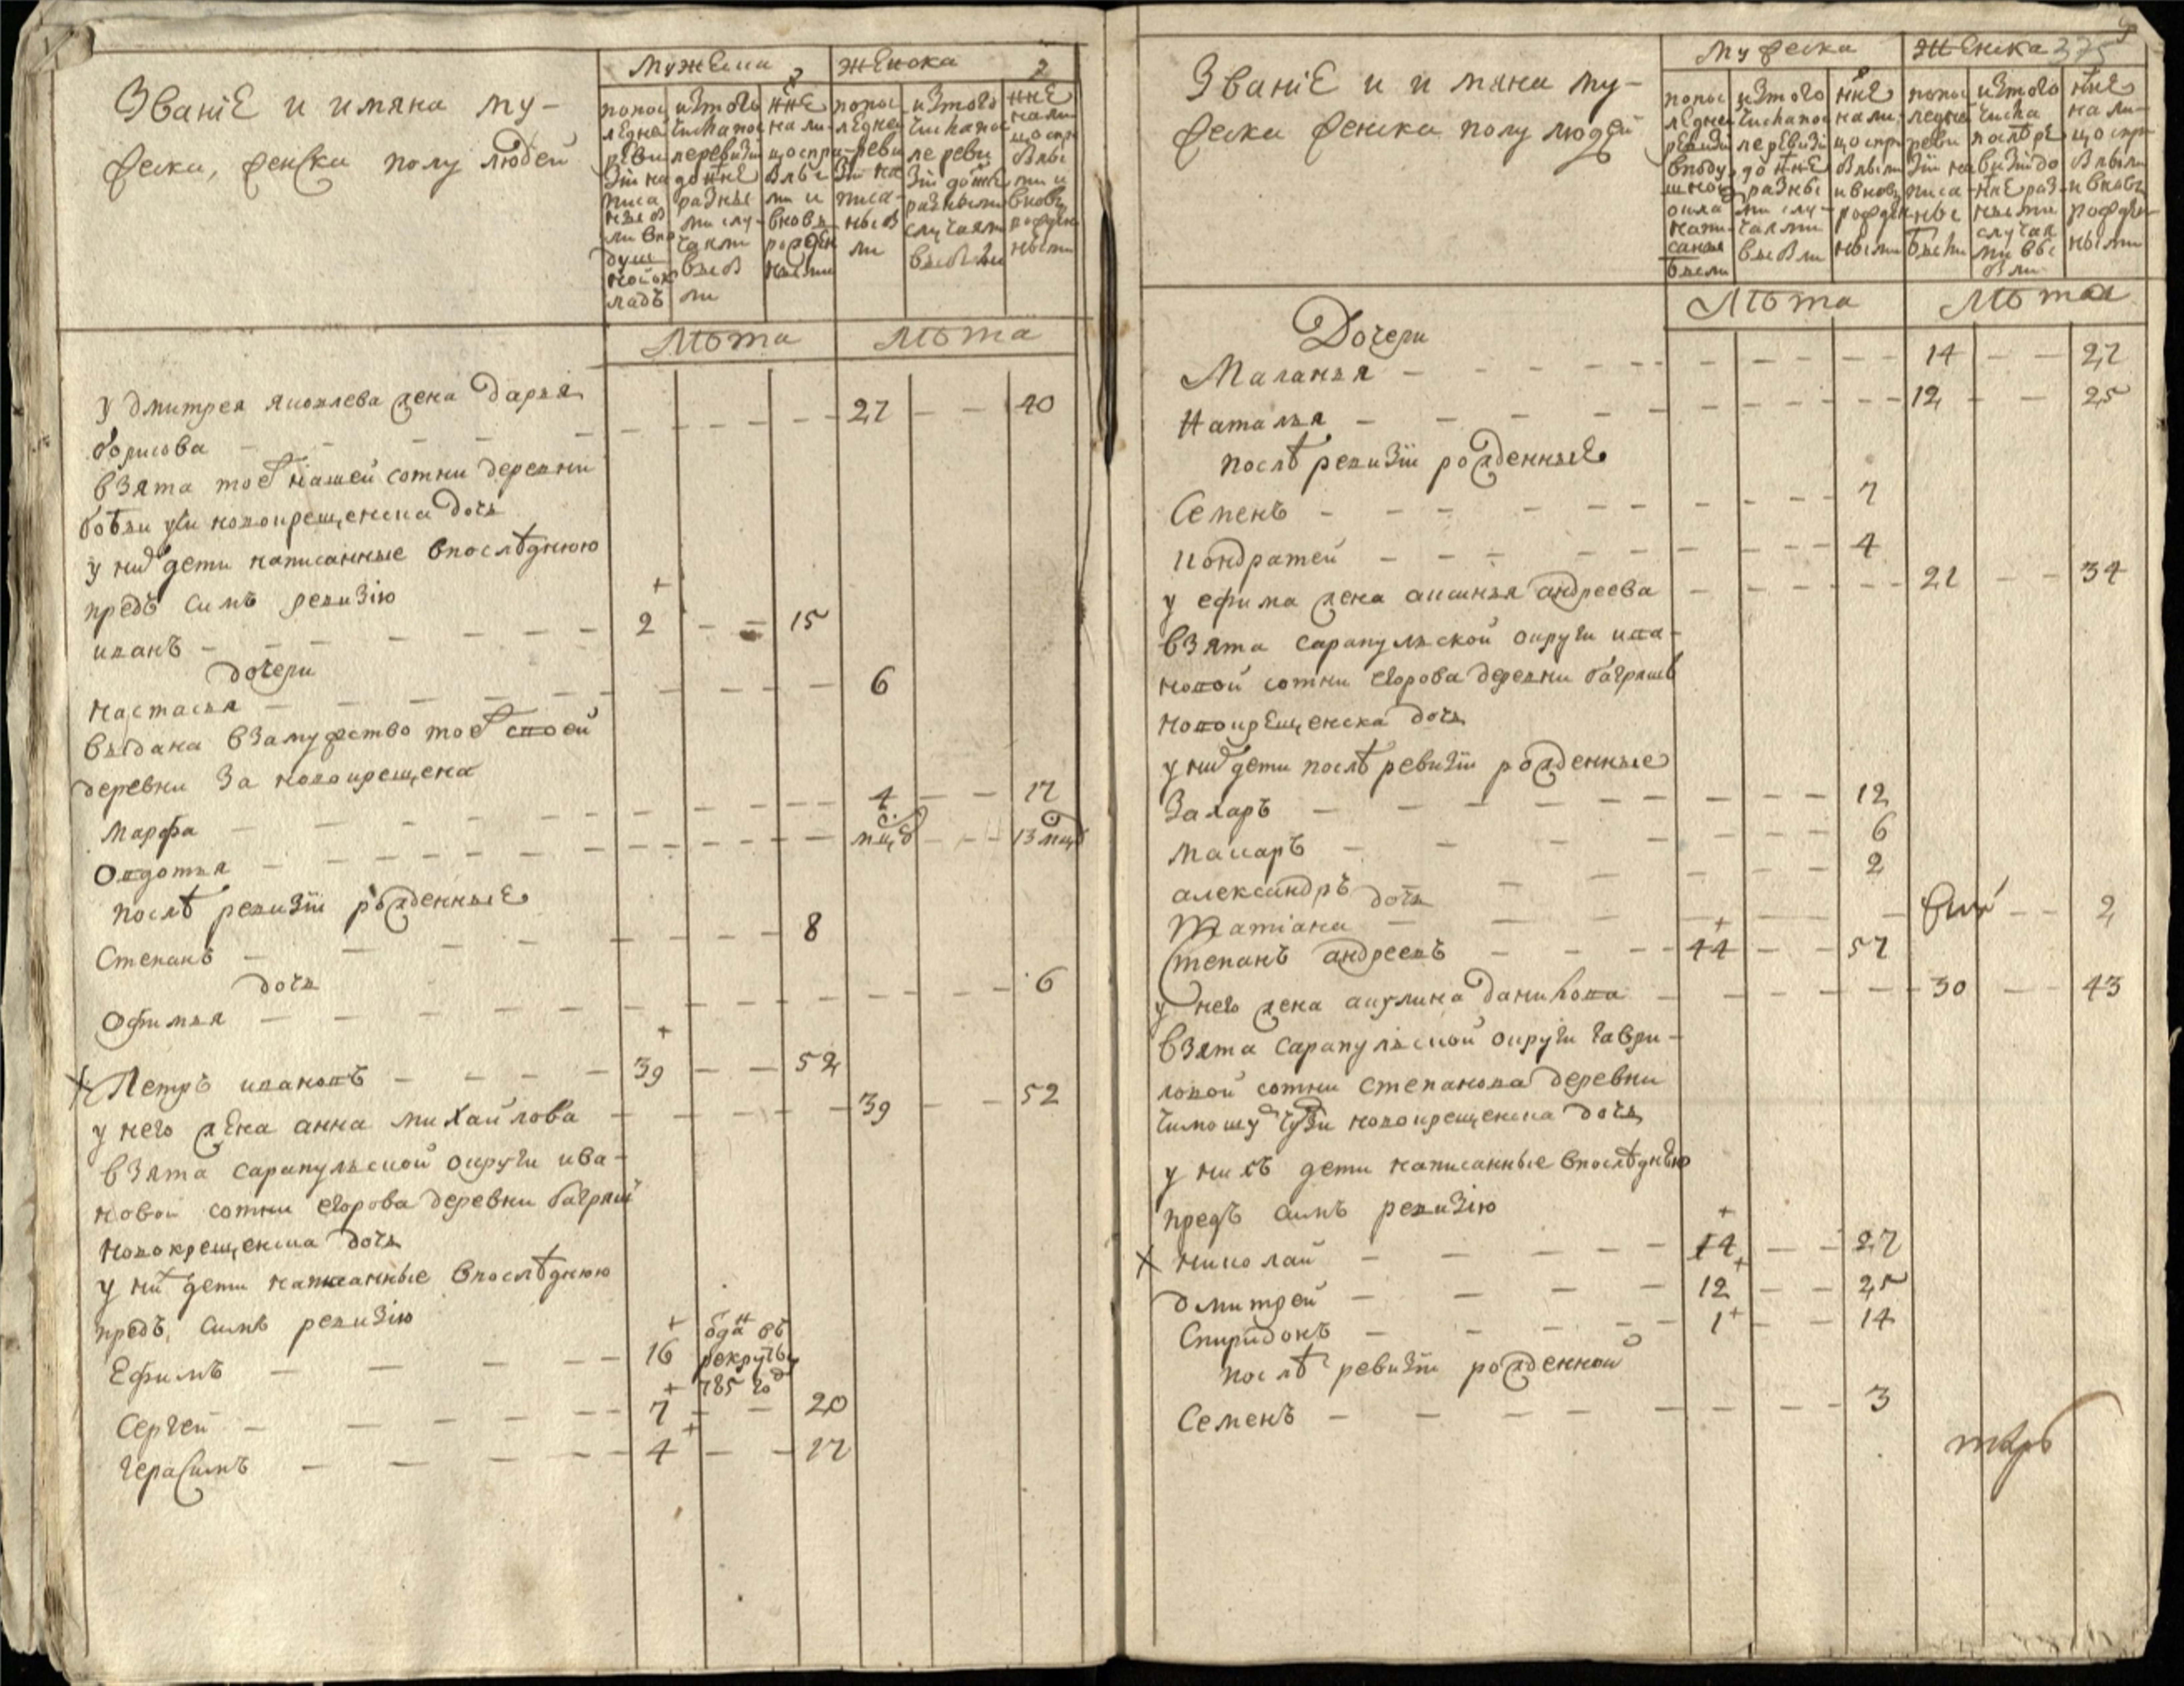 Званiе и имяна му-
жеска, женска полу людей
мужеска
женска
2
попос
ледней
реви
зiи на
писа
ны в
ли въ по
душ
ной ок
ладъ
изтого
числа пос
ле ревизiи
до нне
разны
ми слу-
чаями
выб
ли
нне
нали-
цо спри
бывы
ми и
вновъ
рожден
ными
попос
ледней
реви
зiи на
писа-
ны б
ли
изтого
числа пос
ле реви
зiи до нне
разными
случаями
выбыли
нне
нали
цо спри
бывы
ми и
вновь
рожден
ными
лѣта
лѣта
у дмитрея яковлева жена дарья
борисова - 27 - - 40
взята тоеж нашей сотни деревни
новокрещенска дочь
у них дети написанные впослѣднюю
предъ симъ ревизiю
иванъ - 2 - - 15
дочери
настасья - 6
выдана взамужство тоеж своей
деревни за новокрещена
марфа - 4 - - 17
овдотья - 13
послѣ ревизiи рожденные
Степанъ - 8
дочь
офимья - 6
Петръ ивановъ - 39 - - 52
у него жена анна михайлова - 39 - - 52
взята сарапульской округи ива-
новой сотни егорова деревни багряш
новокрещенска дочь
у них дети написанные впослѣднюю
предъ симъ ревизiю
Ефимъ - 16 одан въ
рекруты
785 год
Сергей - 7 - - 20
Герасимъ - 4 - - 17
Званiе и имяна му-
жеска женска полу людей
мужеска
женска
375
попос
ледней
ревизiи
вподу
шной
окла
напи-
санны
были
изтого
числа пос
ле ревизiи
до нне
разны
ми слу-
чаями
выбыли
нне
нали-
цо спри
былыми
и вновь
рожден
ными
попос
ледней
реви
зiи на
писа
ны
были
изтого
числа
послѣ ре
визiи до
нне раз
ными
случая
ми вы
были
нне
нали-
цо спри
былыми
и вновь
рожден
ными
лѣта
лѣта
Дочери
Маланья - 14 - - 27
Наталья - 12 - - 25
послѣ ревизiи рожденные
Семенъ - 7
кондратей - 4
у ефима жена аксинья андреева - 21 - - 34
взята сарапульской округи ива-
новой сотни егорова деревни багряшъ
новокрещенска дочь
у них дети послѣ ревизiи рожденные
Захаръ - 12
макаръ - 6
александръ - 2
дочь
Татiана - 2
Степанъ андреевъ - 44 - - 57
у него жена акулина данилова - 30 - - 43
взята сарапульской округи гаври-
ловой сотни степанова деревни
новокрещенска дочь
у нихъ дети написанные впослѣднюю
предъ симъ ревизiю
николай - 14 - - 27
дмитрей - 12 - - 25
Спиридонъ - 1 - - 14
послѣ ревизiи рожденной
Семенъ - 3